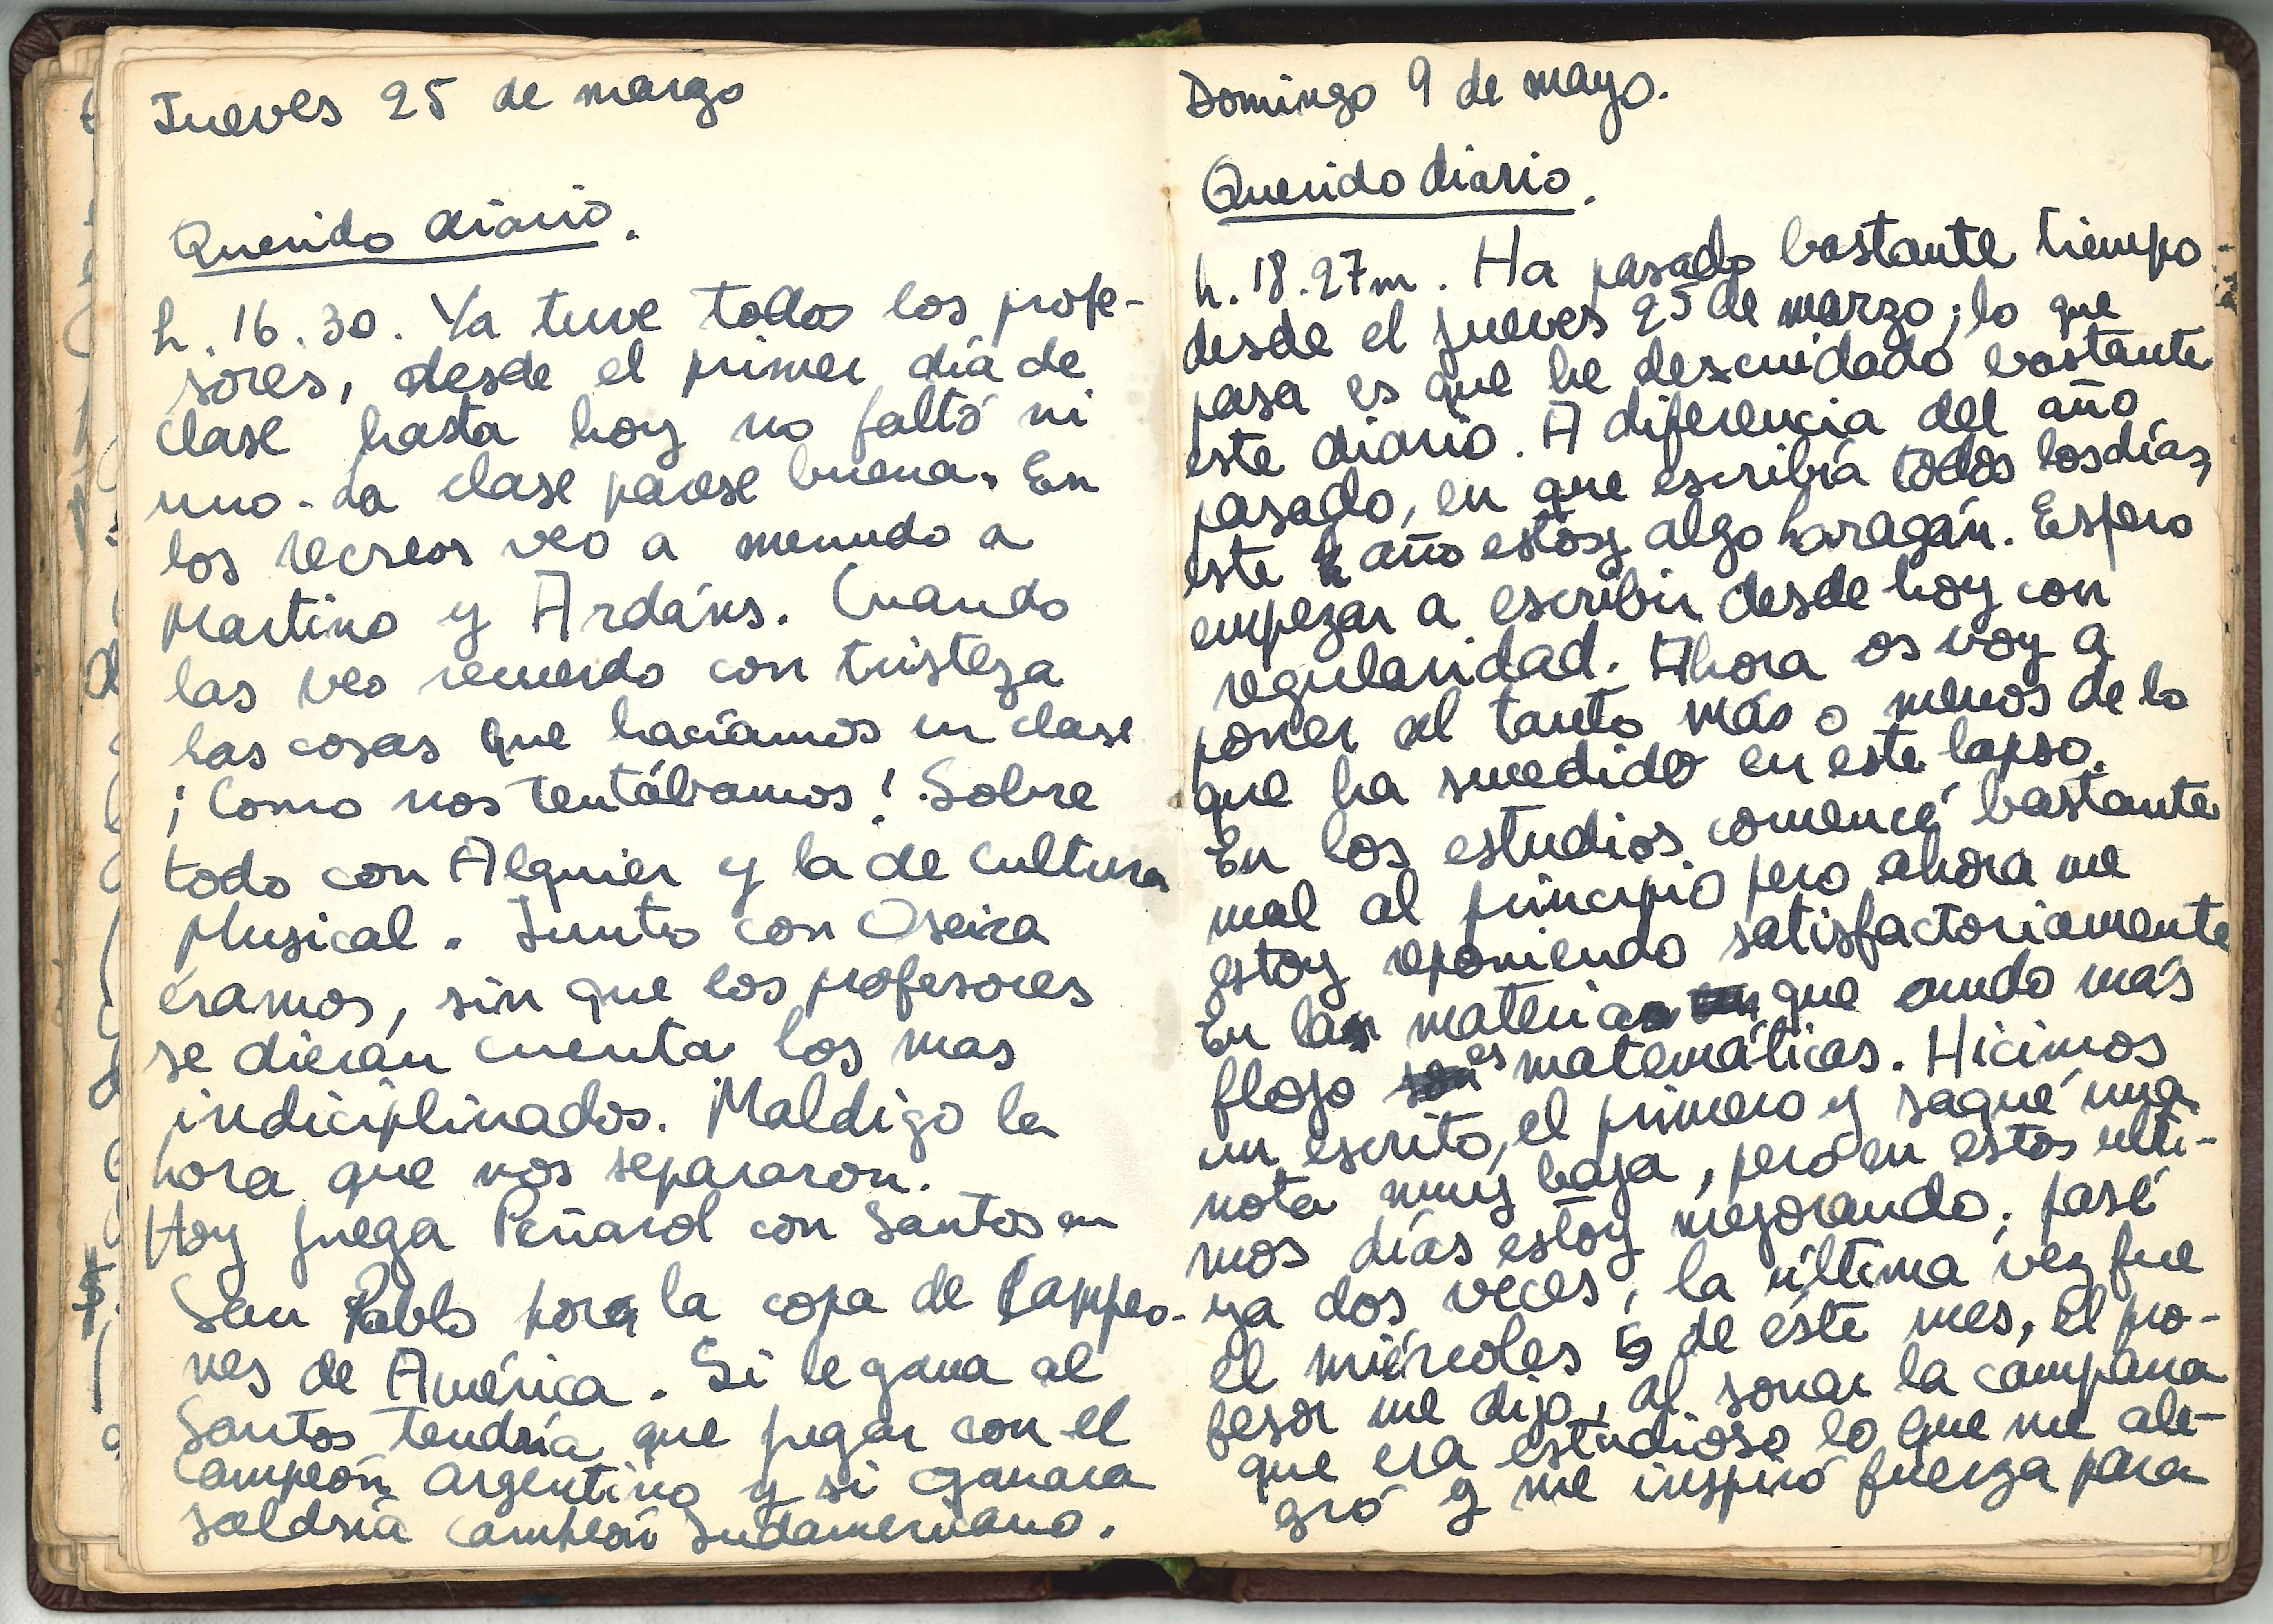 Jueves 25 de marzo
Querido diario.
h. 16.30. Ya tuve todos los profe-
sores, desde el primer día de
clase hasta hoy no faltó ni
uno. La clase parese buena. En
los recreos veo a menudo a
Martino y Ardáns. Cuando
las veo recuerdo con tristeza
las cosas que hacíamos en clase
¡Como nos tentábamos! Sobre
todo con Alguier y la de Cultura
Musical. Junto con Oseira
éramos, sin que los profesores
se dieran cuenta los mas
indiciplinados. Maldigo la
hora que nos separaron.
Hoy juega Peñarol con Santos en
San Pablo por la copa de Campeo-
nes de América. Si le gana al
Santos tendría que jugar con el
campeón argentino y si ganara
saldría campeón Sudamericano.
Domingo 9 de mayo.
Querido diario.
h. 18.27m. Ha pasado bastante tiempo
desde el jueves 25 de marzo; lo que
pasa es que he descuidado bastante
este diario. A diferencia del año
pasado, en que escribía todos los días,
este año estoy algo haragán. Espero
empezar a escribir desde hoy con
regularidad. Ahora os voy a
poner al tanto más o menos de lo
que ha sucedido en este lapso.
En los estudios comencé bastante
mal al principio pero ahora me
estoy reponiendo satisfactoriamente
En las materias que ando más
flojo es matemáticas. Hicimos
un escrito, el primero y saqué una
nota muy baja, pero en estos ulti-
mos días estoy mejorando; pasé
ya dos veces, la última vez fue
el miércoles 5 de éste mes, el pro-
fesor me dijo, al sonar la campana
que era estudioso lo que me ale-
gró y me inspiró fuerza para